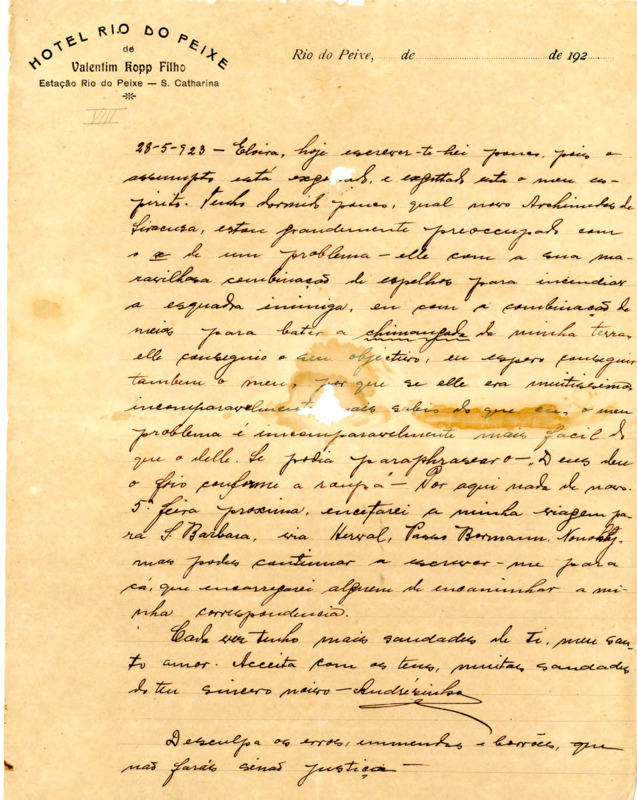 HOTEL RIO DO PEIXE
de
Valentim Kopp Filho
Estação Rio do Peixe — S. Catharina
Rio do Peixe, de de 192
VIII
28-5-923 — Eloira, hoje escrever-te-hei pouco, pois o
assumpto está exgottado, e exgottado esta o meu es-
pirito. Tenho dormido pouco, qual novo Archimedes de
Siracusa, estou grandemente preoccupado com
o x de um problema — elle com a sua ma-
ravilhosa combinação de espelhos para incendiar
a esquadra inimiga, eu com a combinação de
meios para bater a chimangada da minha terra,
elle conseguio o seu objectivo, eu espero conseguir
tambem o meu, por que se elle era muitissimo
incomparavelmente mais sabio do que eu, o meu
problema é incomparavelmente mais facil do
que o delle. Se podia paraphrasear o — "Deus deu
o frio conforme a roupa" — Por aqui nada de novo.
5ª feira proxima, encetarei a minha viagem pa-
rá S. Barbara, via Herval, Passo Bormann, Nonohay,
mas podes continuar a escrever-me para
cá, que encarregarei alguem de encaminhar a mi-
nha correspondencia.
Cada vez tenho mais saudades de ti, meu san-
to amor. Acceita com os teus, muitas saudades
do teu sincero noivo — Andrézinho
Desculpa os erros, emmendas e borrões, que
não farás senão justiça —